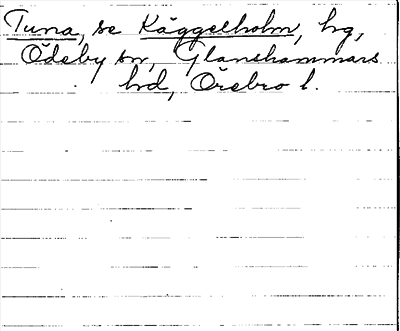 Tuna, se Käggelholm, hg,
Ödeby sn, Glanshammars
hd, Örebro l.